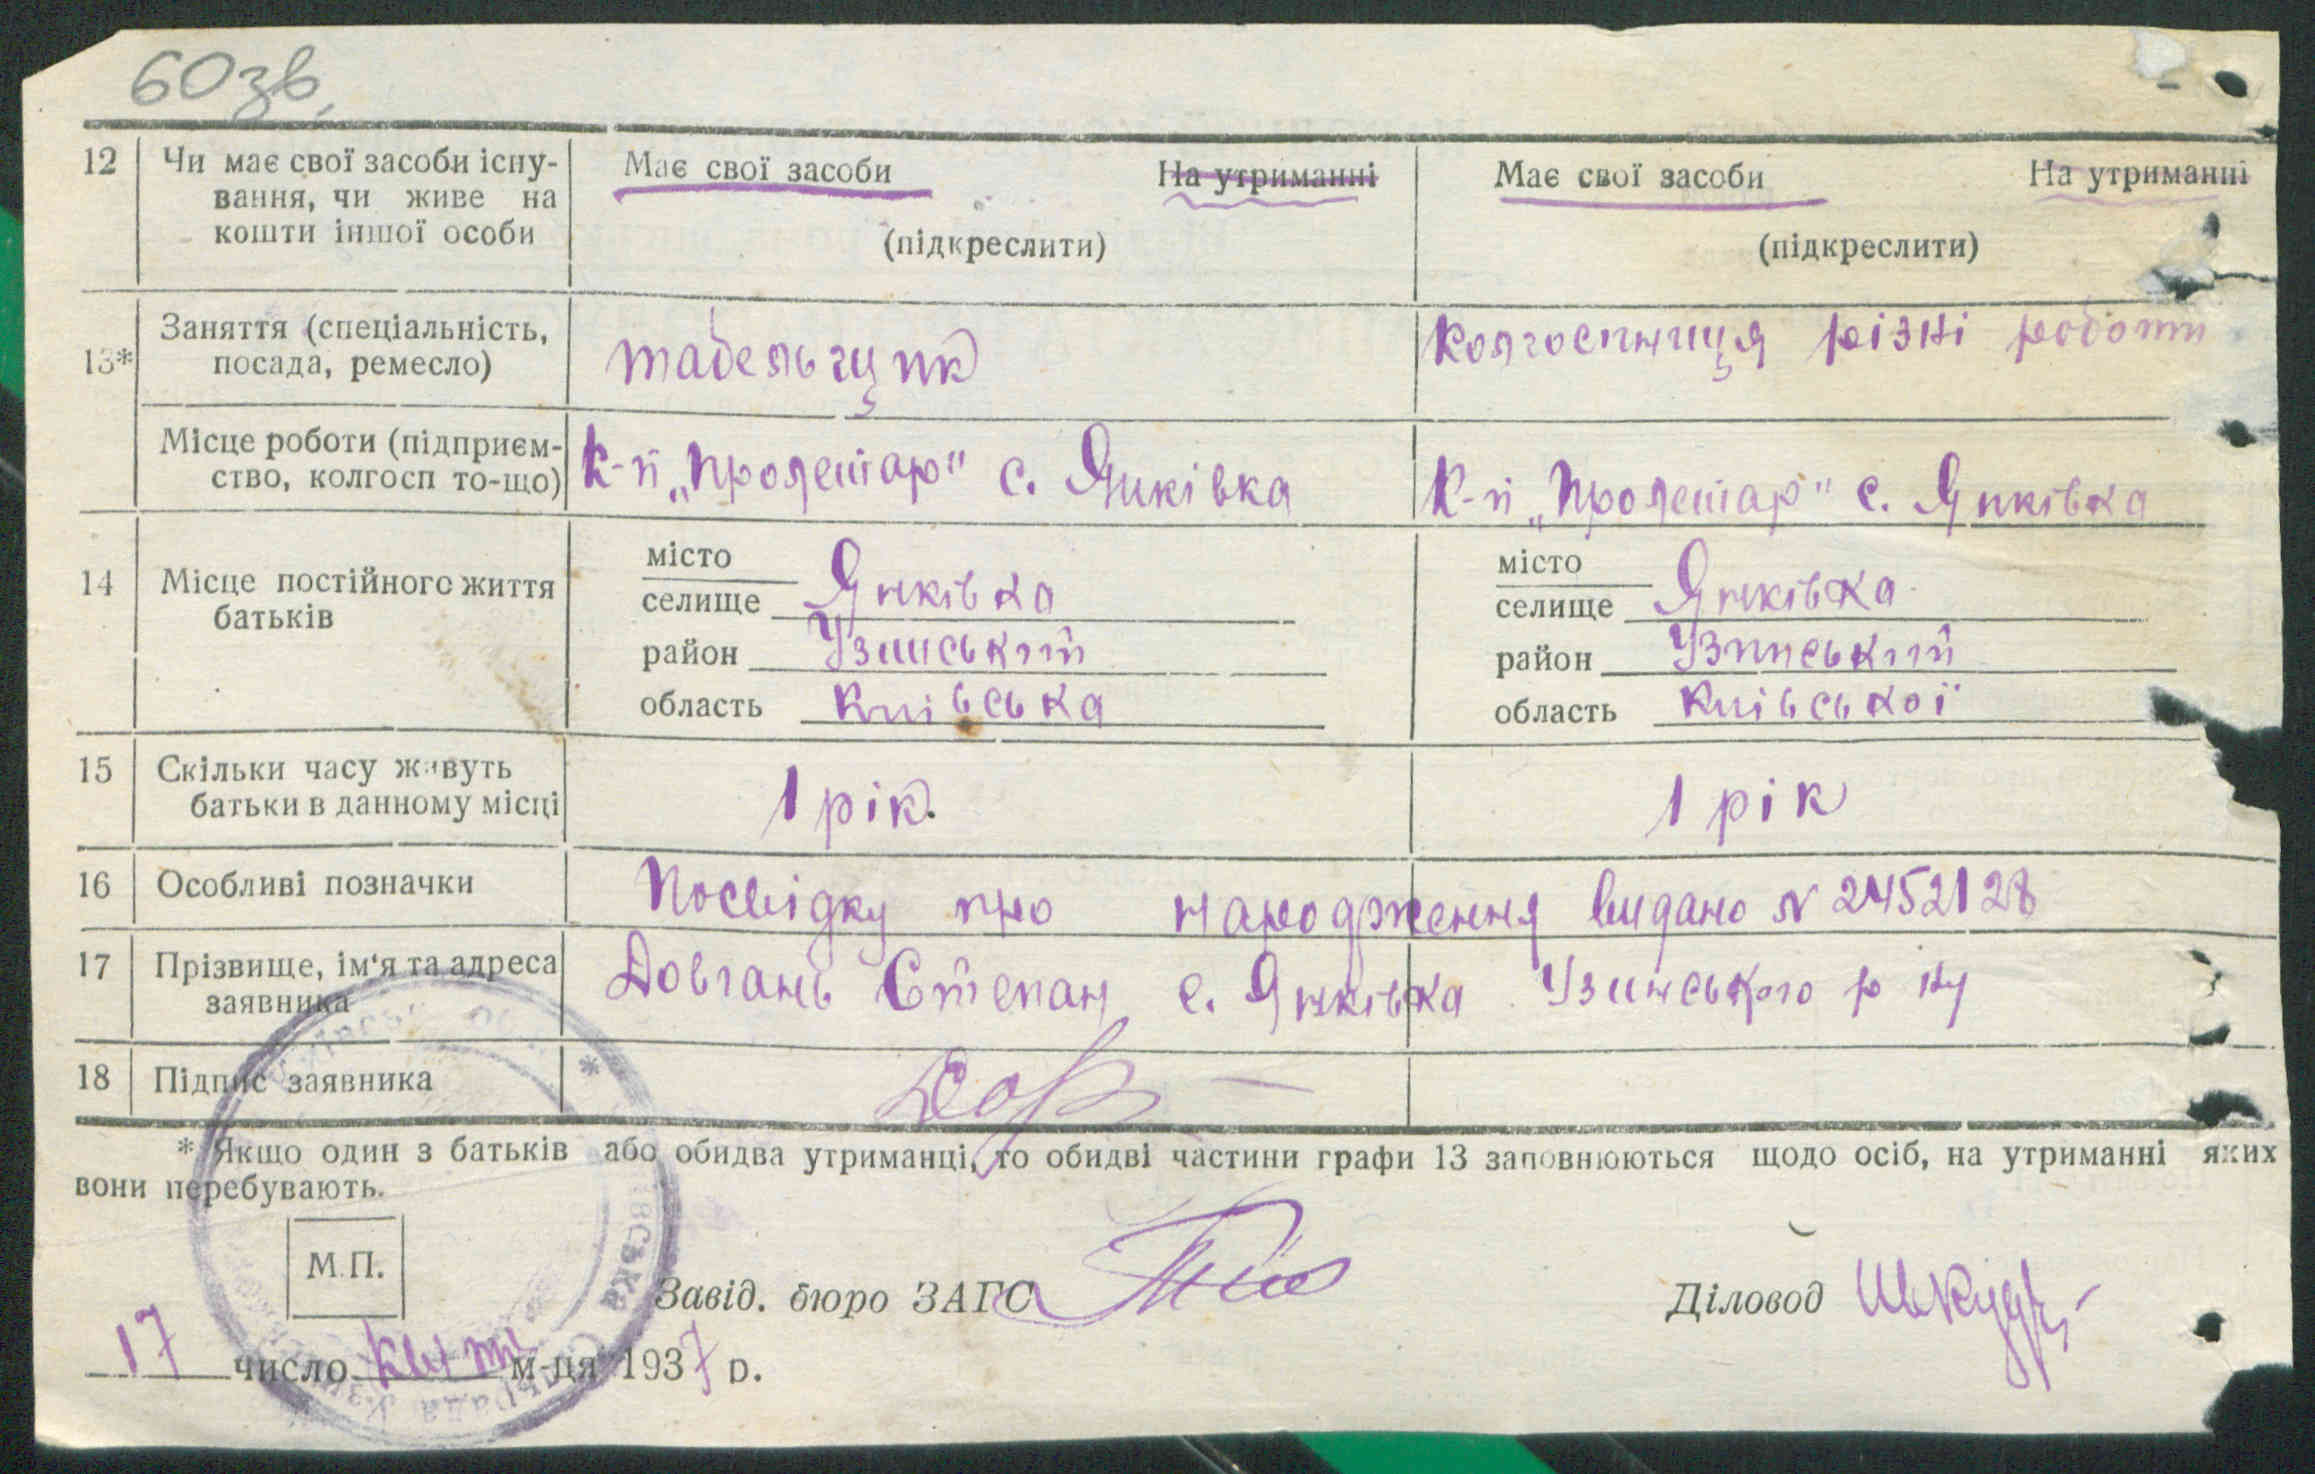 60зв.
12 Чи має свої засоби існу- Має свої засоби На утриманні Має свої засоби На утриманні
вання, чи живе на
кошти іншої особи (підкреслити) (підкреслити)
13* Заняття (спеціальність, табельщик колгоспниця різні роботи
посада, ремесло)
Місце роботи (підприєм- К-п „Пролетар" с. Янківка К-п „Пролетар" с. Янківка
ство, колгосп то-що)
14 Місце постійного життя місто Янківка місто Янківка
батьків селище селище
район Узинський район Узинський
область Київська область Київської
15 Скільки часу живуть 1 рік. 1 рік
батьки в данному місці
16 Особливі позначки Посвідку про народження видано № 2452128
17 Прізвище, ім'я та адреса Довгань Степан с. Янківка Узинського р ну
заявника
18 Підпис заявника Довг
* Якщо один з батьків або обидва утриманці, то обидві частини графи 13 заповнюються щодо осіб, на утриманні яких
вони перебувають.
М.П.
Завід. бюро ЗАГС Діловод
17 число квітн м-ця 1937 р.